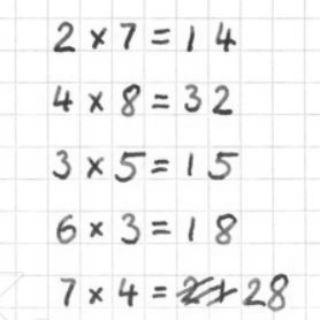 2 × 7 = 14
4 × 8 = 32
3 × 5 = 15
6 × 3 = 18
7 × 4 = 28